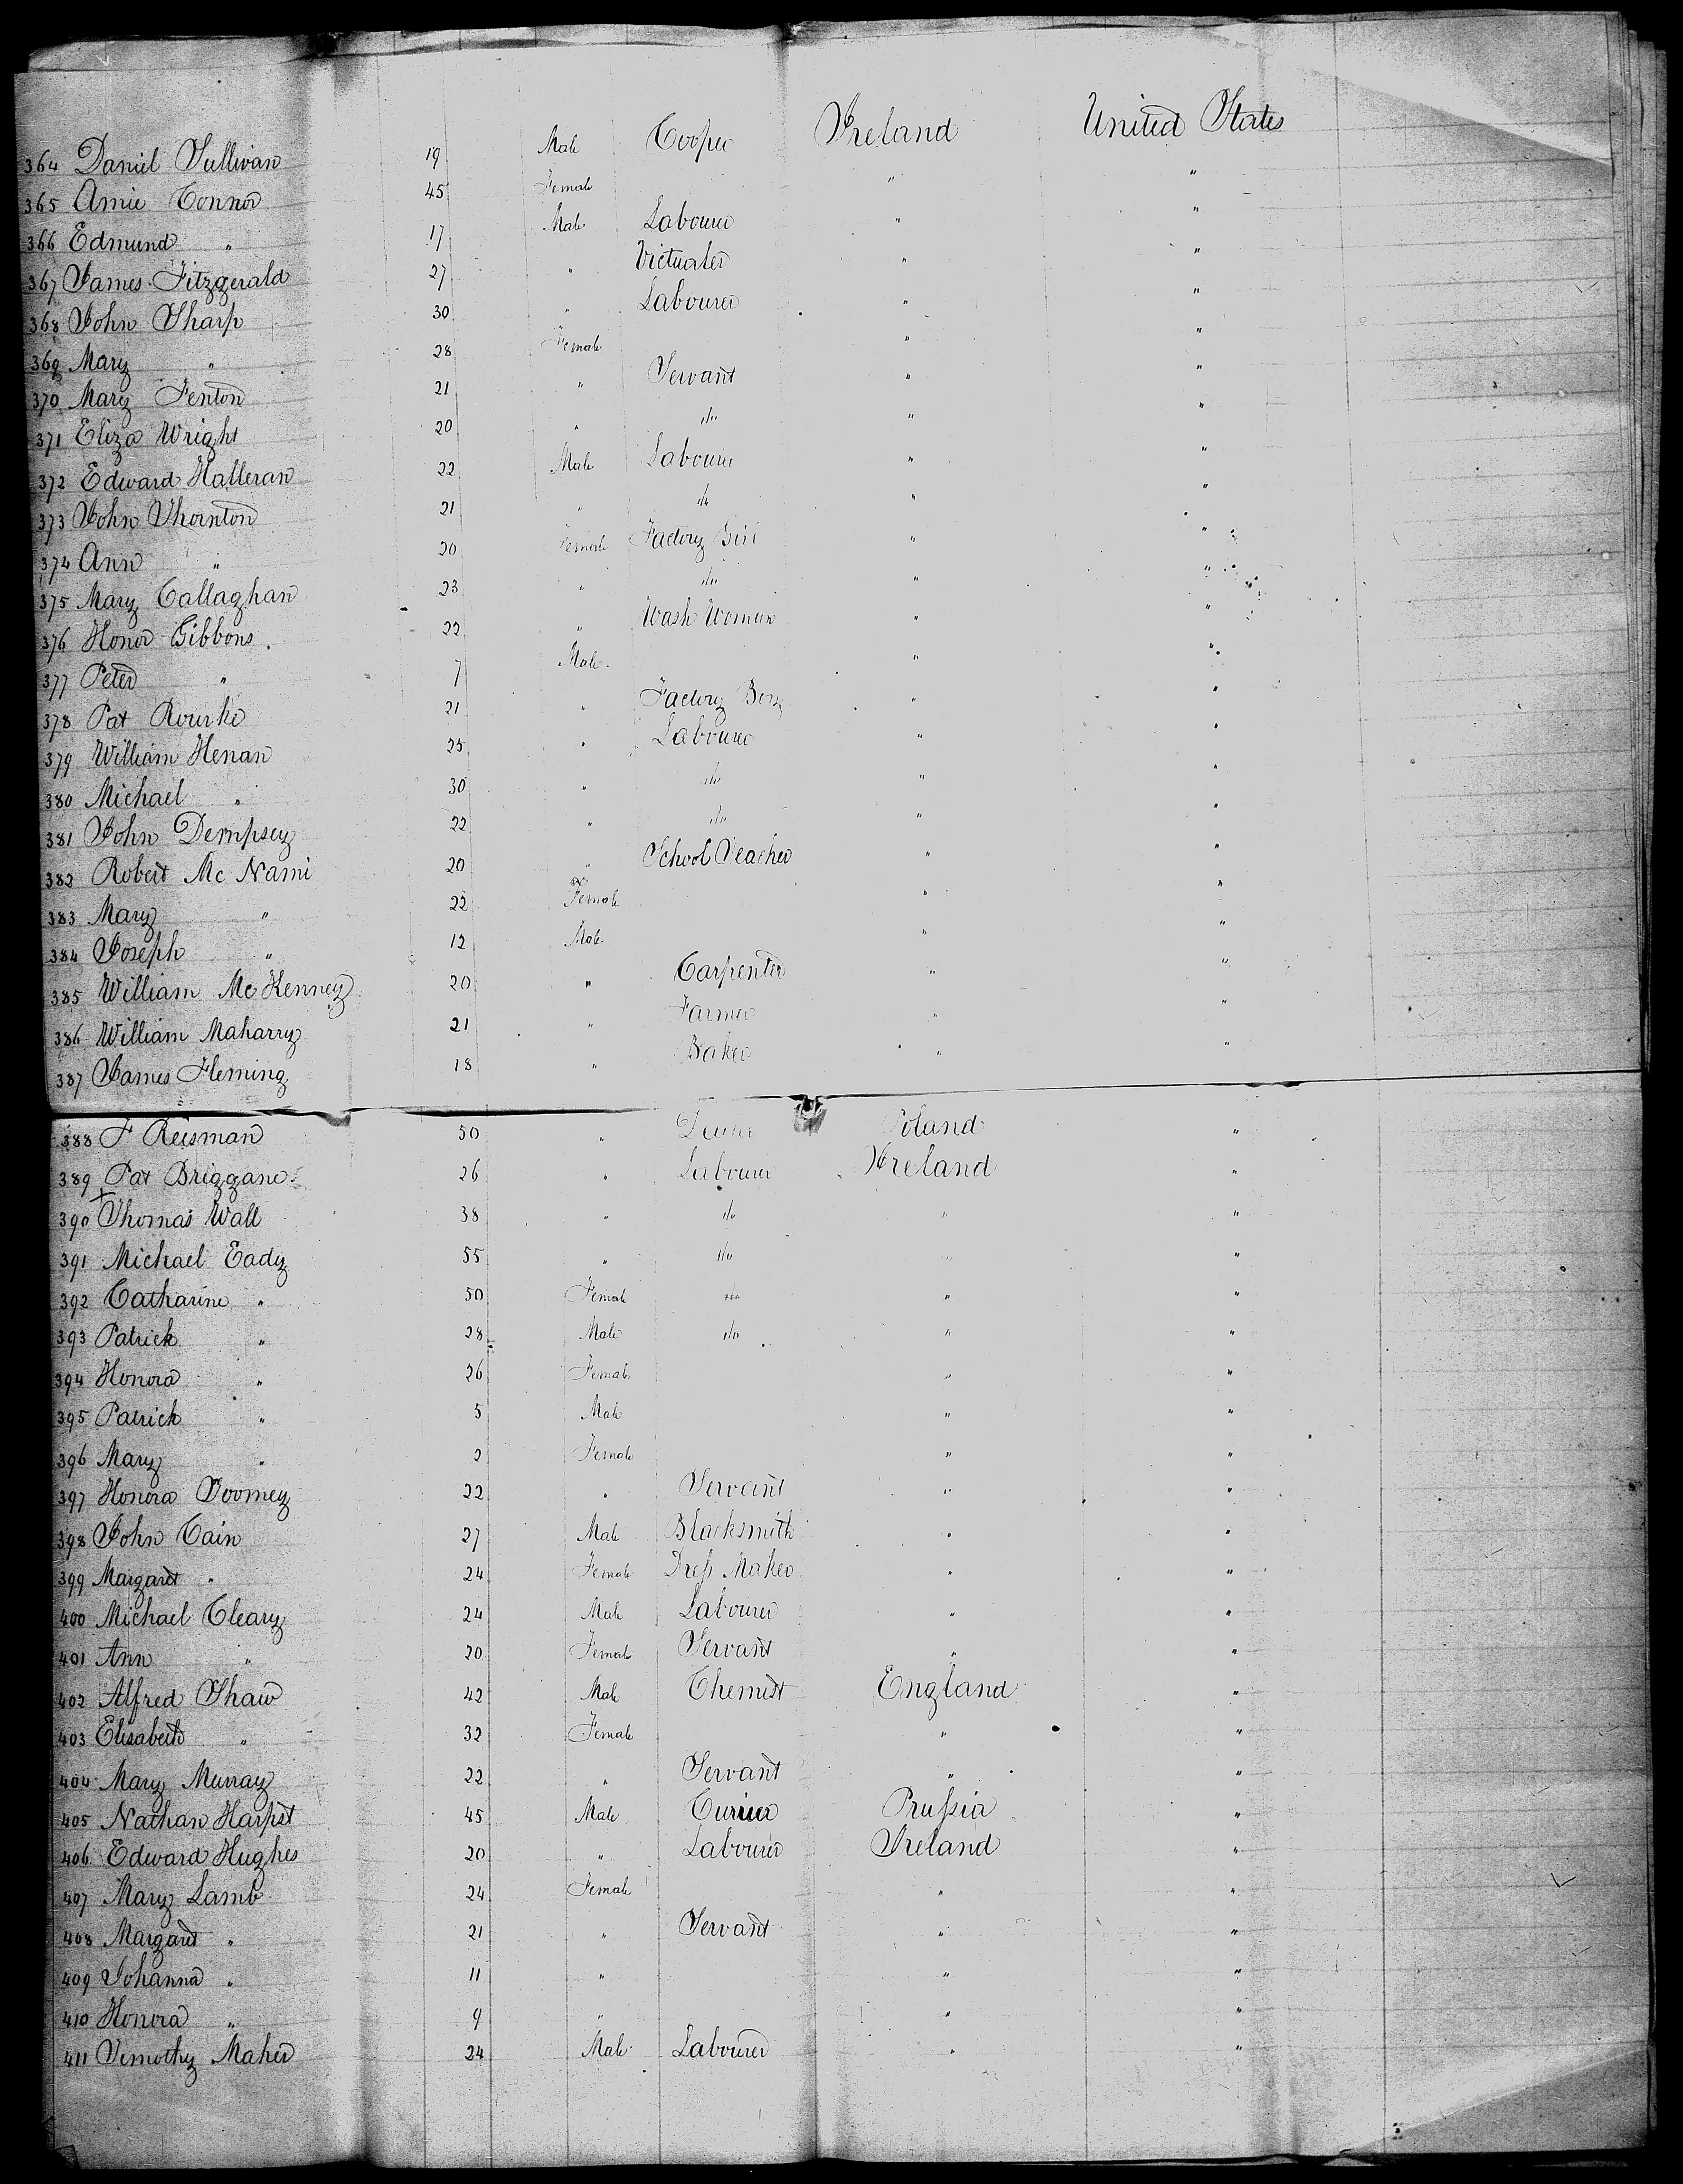 364 Daniel Sullivan 19 Male Cooper Ireland United States
365 Amie Connor 45 Female " "
366 Edmund " 17 Male Labourer " "
367 James Fitzgerald 27 " Victualer " "
368 John Sharp 30 " Labourer " "
369 Mary " 28 Female " "
370 Mary Fenton 21 " Servant " "
371 Eliza Wright 20 " do " "
372 Edward Halleran 22 Male Labourer " "
373 John Thornton 21 " do " "
374 Ann " 20 Female Factory Girl " "
375 Mary Callaghan 23 " do " "
376 Honor Gibbons 22 " Wash Woman " "
377 Peter " 7 Male " "
378 Pat Rourke 21 " Factory Boy " "
379 William Henan 25 " Labourer " "
380 Michael " 30 " do " "
381 John Dempsey 22 " do " "
382 Robert Mc Nami 20 " School Teacher " "
383 Mary " 22 Female " "
384 Joseph " 12 Male " "
385 William McKenney 20 " Carpenter " "
386 William Maharry 21 " Farmer " "
387 James Fleming 18 " Baker " "
388 F Reisman 50 " Poland "
389 Pat Briggane 26 " Labourer Ireland "
390 Thomas Wall 38 " do " "
391 Michael Eady 55 " do " "
392 Catharine " 50 Female " "
393 Patrick " 28 Male do " "
394 Honora " 26 Female " "
395 Patrick " 5 Male " "
396 Mary " Female " "
397 Honora Toomey 22 " Servant " "
398 John Cain 27 Male Blacksmith " "
399 Margaret " 24 Female Dress Maker " "
400 Michael Cleary 24 Male Labourer " "
401 Ann " 20 Female Servant " "
402 Alfred Shaw 42 Male Chemist England "
403 Elisabeth " 32 Female " "
404 Mary Murray 22 " Servant " "
405 Nathan Harpst 45 Male Currier Prussia "
406 Edward Hughes 20 " Labourer Ireland "
407 Mary Lamb 24 Female " "
408 Margaret " 21 " Servant " "
409 Johanna " 11 " " "
410 Honora " 9 " " "
411 Timothy Maher 24 Male Labourer " "